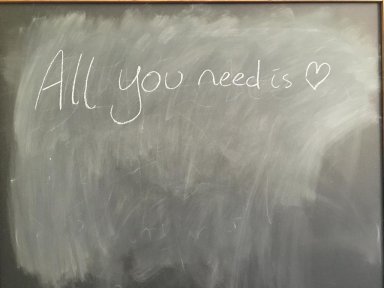 All you need is ♡